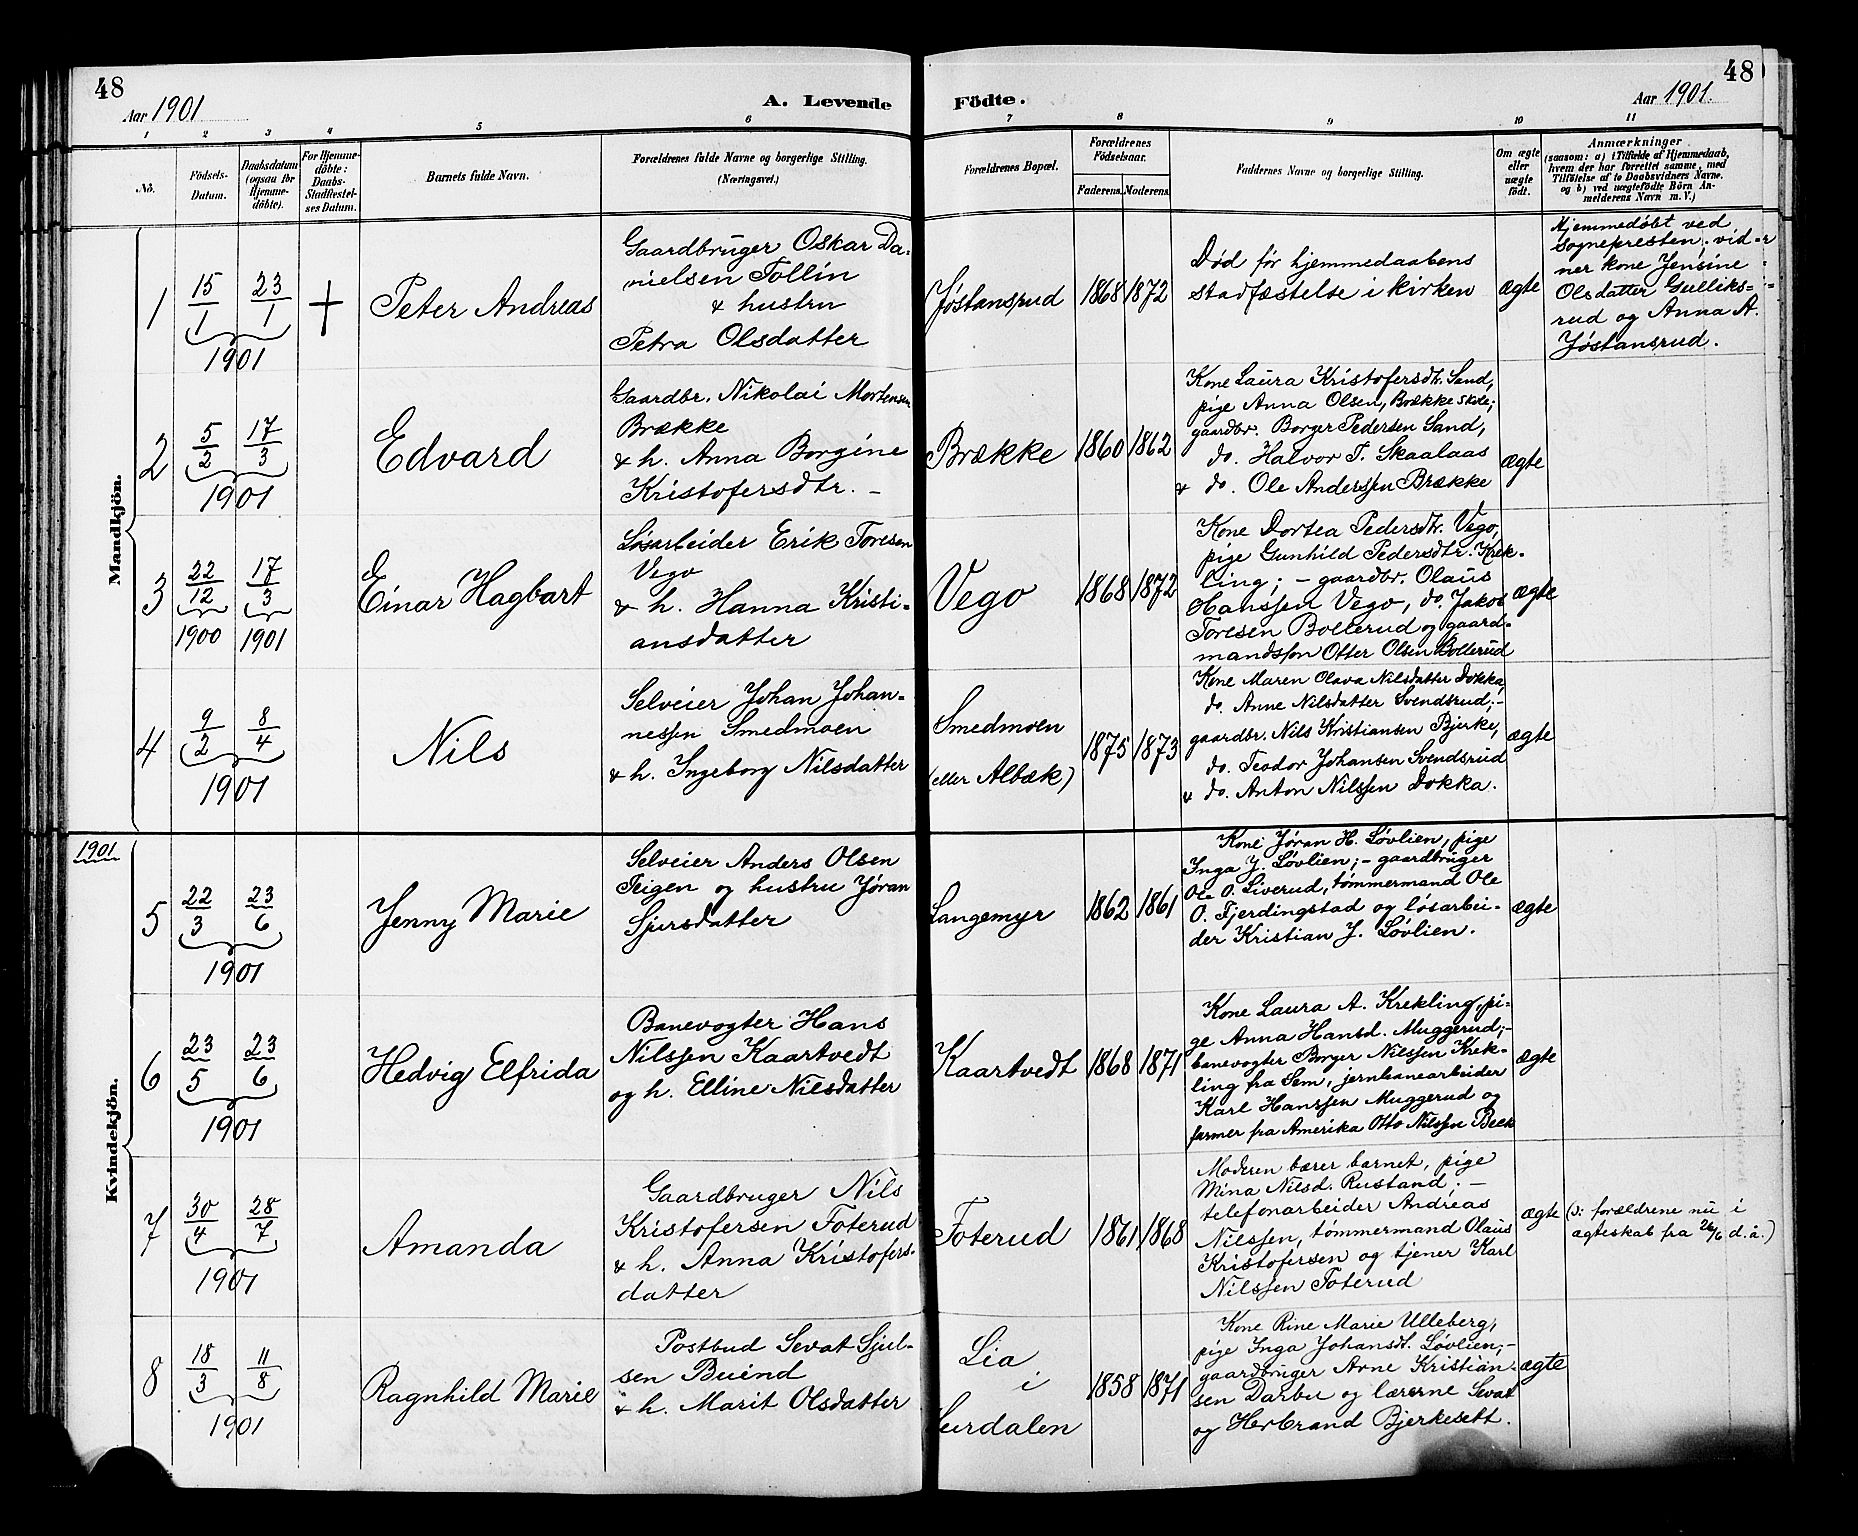 48
48
Aar 1901
A. Levende Födte.
Aar 1901.
1 2 3 4 5 6 7 8 9 10 11
No.
Födsels-
Datum.
Daabsdatum
(ogsaa for
Hjemme-
döbte).
For Hjemme-
döbte:
Daabs-
Stadfæstel-
ses Datum.
Barnets fulde Navn.
Forældrenes fulde Navne og borgerlige Stilling.
(Næringsvei.)
Forældrenes Bopæl.
Forældrenes
Födselsaar.
Faderens. Moderens.
Faddernes Navne og borgerlige Stilling.
Om ægte
eller
uægte
födt.
Anmærkninger
(saasom: a) i Tilfælde af Hjemmedaab,
hvem der har forrettet samme, med
Tilföielse af to Daabsvidners Navne.
og b) ved uægtefödte Börn An-
melderens Navn m. V.)
Mandkjön.
1
15/1 23/1
1901
+
Peter Andreas
Gaardbruger Oskar Da-
nielsen Tollin
& hustru
Petra Olsdatter
Jøstansrud
1868 1872
Død før hjemmedaabens
stadfæstelse i kirken
ægte
Hjemmedøbt ved
sognepresten; vid-
ner kone Jensine
Olsdatter Gulliks-
rud og Anna A.
Jøstansrud.
2
5/2 17/3
1901
Edvard
Gaardbr. Nikolai Mortensen
Brække
& h. Anna Borgine
Kristofersdtr. -
Brække
1860 1862
Kone Laura Kristofersdtr. Sand,
pige Anna Olsen, Brække skole;
gaardbr. Borger Pedersen Sand,
do. Halvor T. Skaalaas
& do. Ole Anderssen Brække
ægte
3
22/12 17/3
1900 1901
Einar Hagbart
Løsarbeider Erik Toresen
Vego
& h. Hanna Kristi-
ansdatter
Vego
1868 1872
Kone Dortea Pedersdtr. Vego,
pige Gunhild Pedersdtr. Krek-
ling; - gaardbr. Olaus
Hanssen Vego, do. Jakob
Toresen Bollerud og gaard-
mandssøn Otter Olsen Bollerud
ægte
4
9/2 8/4
1901
Nils
Selveier Johan Johan-
nessen Smedmoen
& h. Ingeborg Nilsdatter
Smedmoen
(eller Albæk)
1875 1873
Kone Maren Olava Nilsdatter Dokka,
do. Anne Nilsdatter Svendsrud; -
gaardbr. Nils Kristiansen Bjerke,
do. Teodor Johansen Svendsrud
& do. Anton Nilssen Dokka.
ægte
1901
Kvindekjön.
5
22/3 23/6
1901
Jenny Marie
Selveier Anders Olsen
Teigen og hustru Jøran
Sjursdatter
Langemyr
1862 1861
Kone Jøran H. Løvlien, pige
Inga J. Løvlien; - gaardbruger
Ole O. Liverud, tømmermand Ole
O. Fjerdingstad og løsarbei-
der Kristian J. Løvlien.
ægte
6
23/5 23/6
1901
Hedvig Elfrida
Banevogter Hans
Nilssen Kaartvedt
og h. Elline Nilsdatter
Kaartvedt
1868 1871
Kone Laura A. Krekling, pi-
ge Anna Hansd. Muggerud; -
banevogter Borger Nilssen Krek-
ling fra Sem, jernbanearbeider
Karl Hanssen Muggerud og
farmer fra Amerika Otto Nilssen Beck
ægte
7
30/4 28/7
1901
Amanda
Gaardbruger Nils
Kristofersen Foterud
& h. Anna Kristofers-
datter
Foterud
1861 1868
Moderen bærer barnet, pige
Mina Nilsd. Rustand; -
telefonarbeider Andreas
Nilssen, tømmermand Olaus
Kristofersen og tjener Karl
Nilssen Foterud
ægte
(ɔ: forældrene nu i
ægteskab fra 26/6 d. å.)
8
18/3 11/8
1901
Ragnhild Marie
Postbud Sevat Sjul-
sen Buind
& h. Marit Olsdatter
Lia
i
Surdalen
1858 1871
Kone Rine Marie Ulleberg,
pige Inga Johansdt. Løvlien; -
gaardbruger Arne Kristian-
sen Darbu og lærerne Sevat
og Herbrand Bjerkesett.
ægte